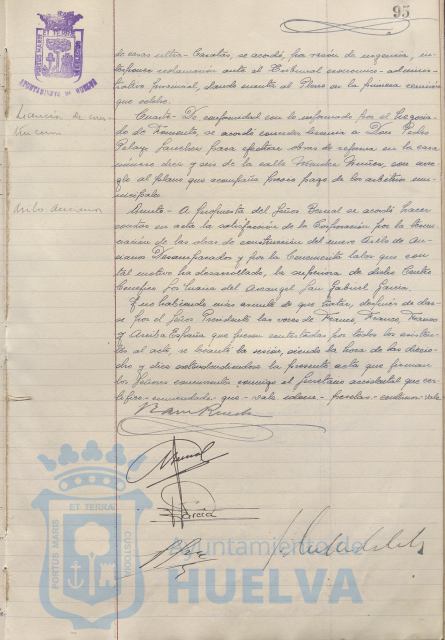 95
PORTUS MARIS ET TERRAE CUSTODIA
AYUNTAMIENTO DE HUELVA
de casas ultra-baratas, se acordó, por razón de urgencia, in-
terponer reclamación ante el Tribunal económico-adminis-
trativo provincial, dando cuenta al Pleno en la primera reunión
que celebre.
Licencia de
Cuarto - De conformidad con lo informado por el Negocia-
do de Fomento, se acordó conceder licencia a Don Pedro
Pelayo Sanchez para efectuar obras de reforma en la casa
número diez y seis de la calle Mendez Nuñez, con arre-
glo al plano que acompaña previo pago de los arbitrios mu-
nicipales.
Asilo ancianos
Quinto - A propuesta del Señor Bernal se acordó hacer
constar en acta la satisfacción de la Corporación por la termi-
nación de las obras de construcción del nuevo Asilo de An-
cianos Desamparados y por la labor que con
tal motivo ha desarrollado, la superiora de dicho Centro
Benefico Sor Maria del Arcangel San Gabriel Garcia.
Y no habiendo más asuntos de que tratar, después de dar-
se por el Señor Presidente las voces de Franco, Franco, Franco
y Arriba España, que fueron contestadas por todos los asisten-
tes al acto, se levantó la sesión, siendo la hora de las diecio-
cho y diez extendiéndose la presente acta que firman
los señores concurrentes conmigo el Secretario accidental que cer-
tifico = enmendado = que = vale
Garcia
PORTUS MARIS ET TERRAE CUSTODIA
Ayuntamiento de
HUELVA